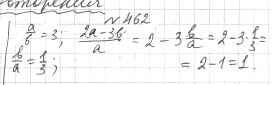 № 462
a/b = 3; (2a-3b)/a = 2 - 3 b/a = 2-3·1/3 =
b/a = 1/3; = 2-1 = 1.